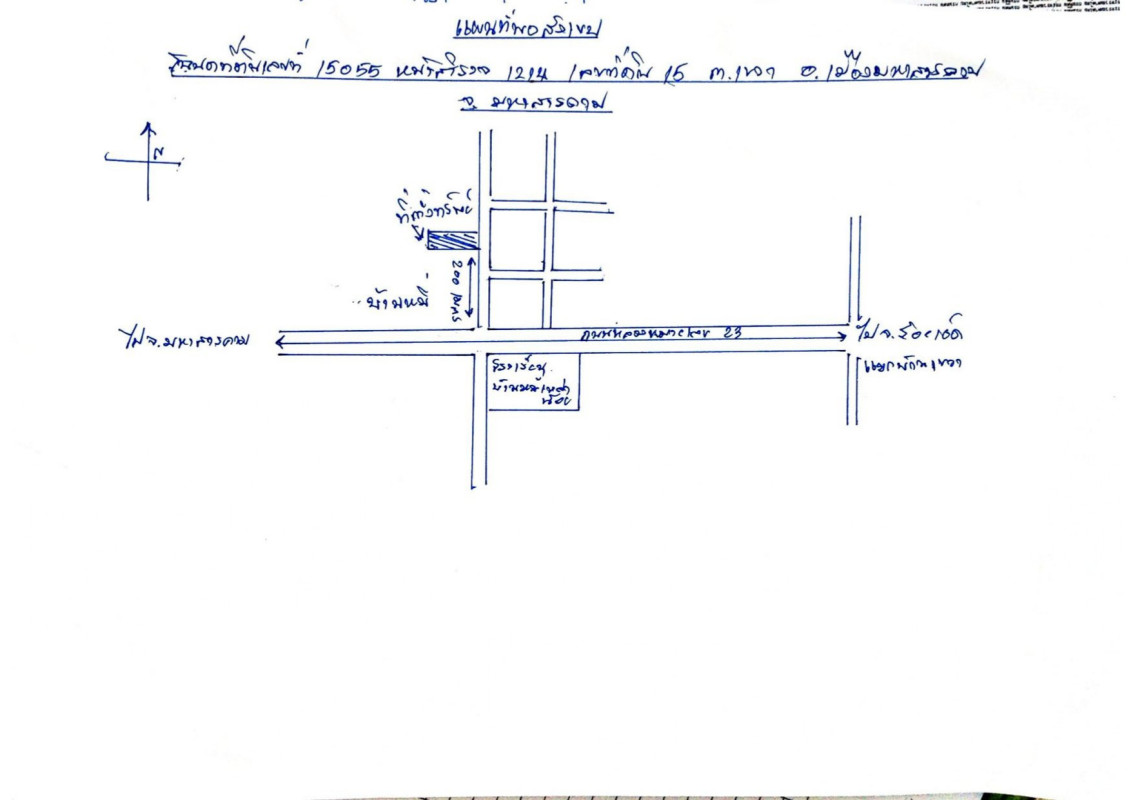 แผนที่พอสังเขป
โฉนดที่ดินเลขที่ 15055 หน้าสำรวจ 1214 เลขที่ดิน 15 ต.เขวา อ.เมืองมหาสารคาม
จ. มหาสารคาม
N
ที่ตั้งทรัพย์
200 เมตร
บ้านหมี่
ไป จ.มหาสารคาม
ถนนหลวงหมายเลข 23
ไป จ.ร้อยเอ็ด
แยกบ้านเขวา
โรงเรียน
บ้านหม้อเหล่า
น้อย